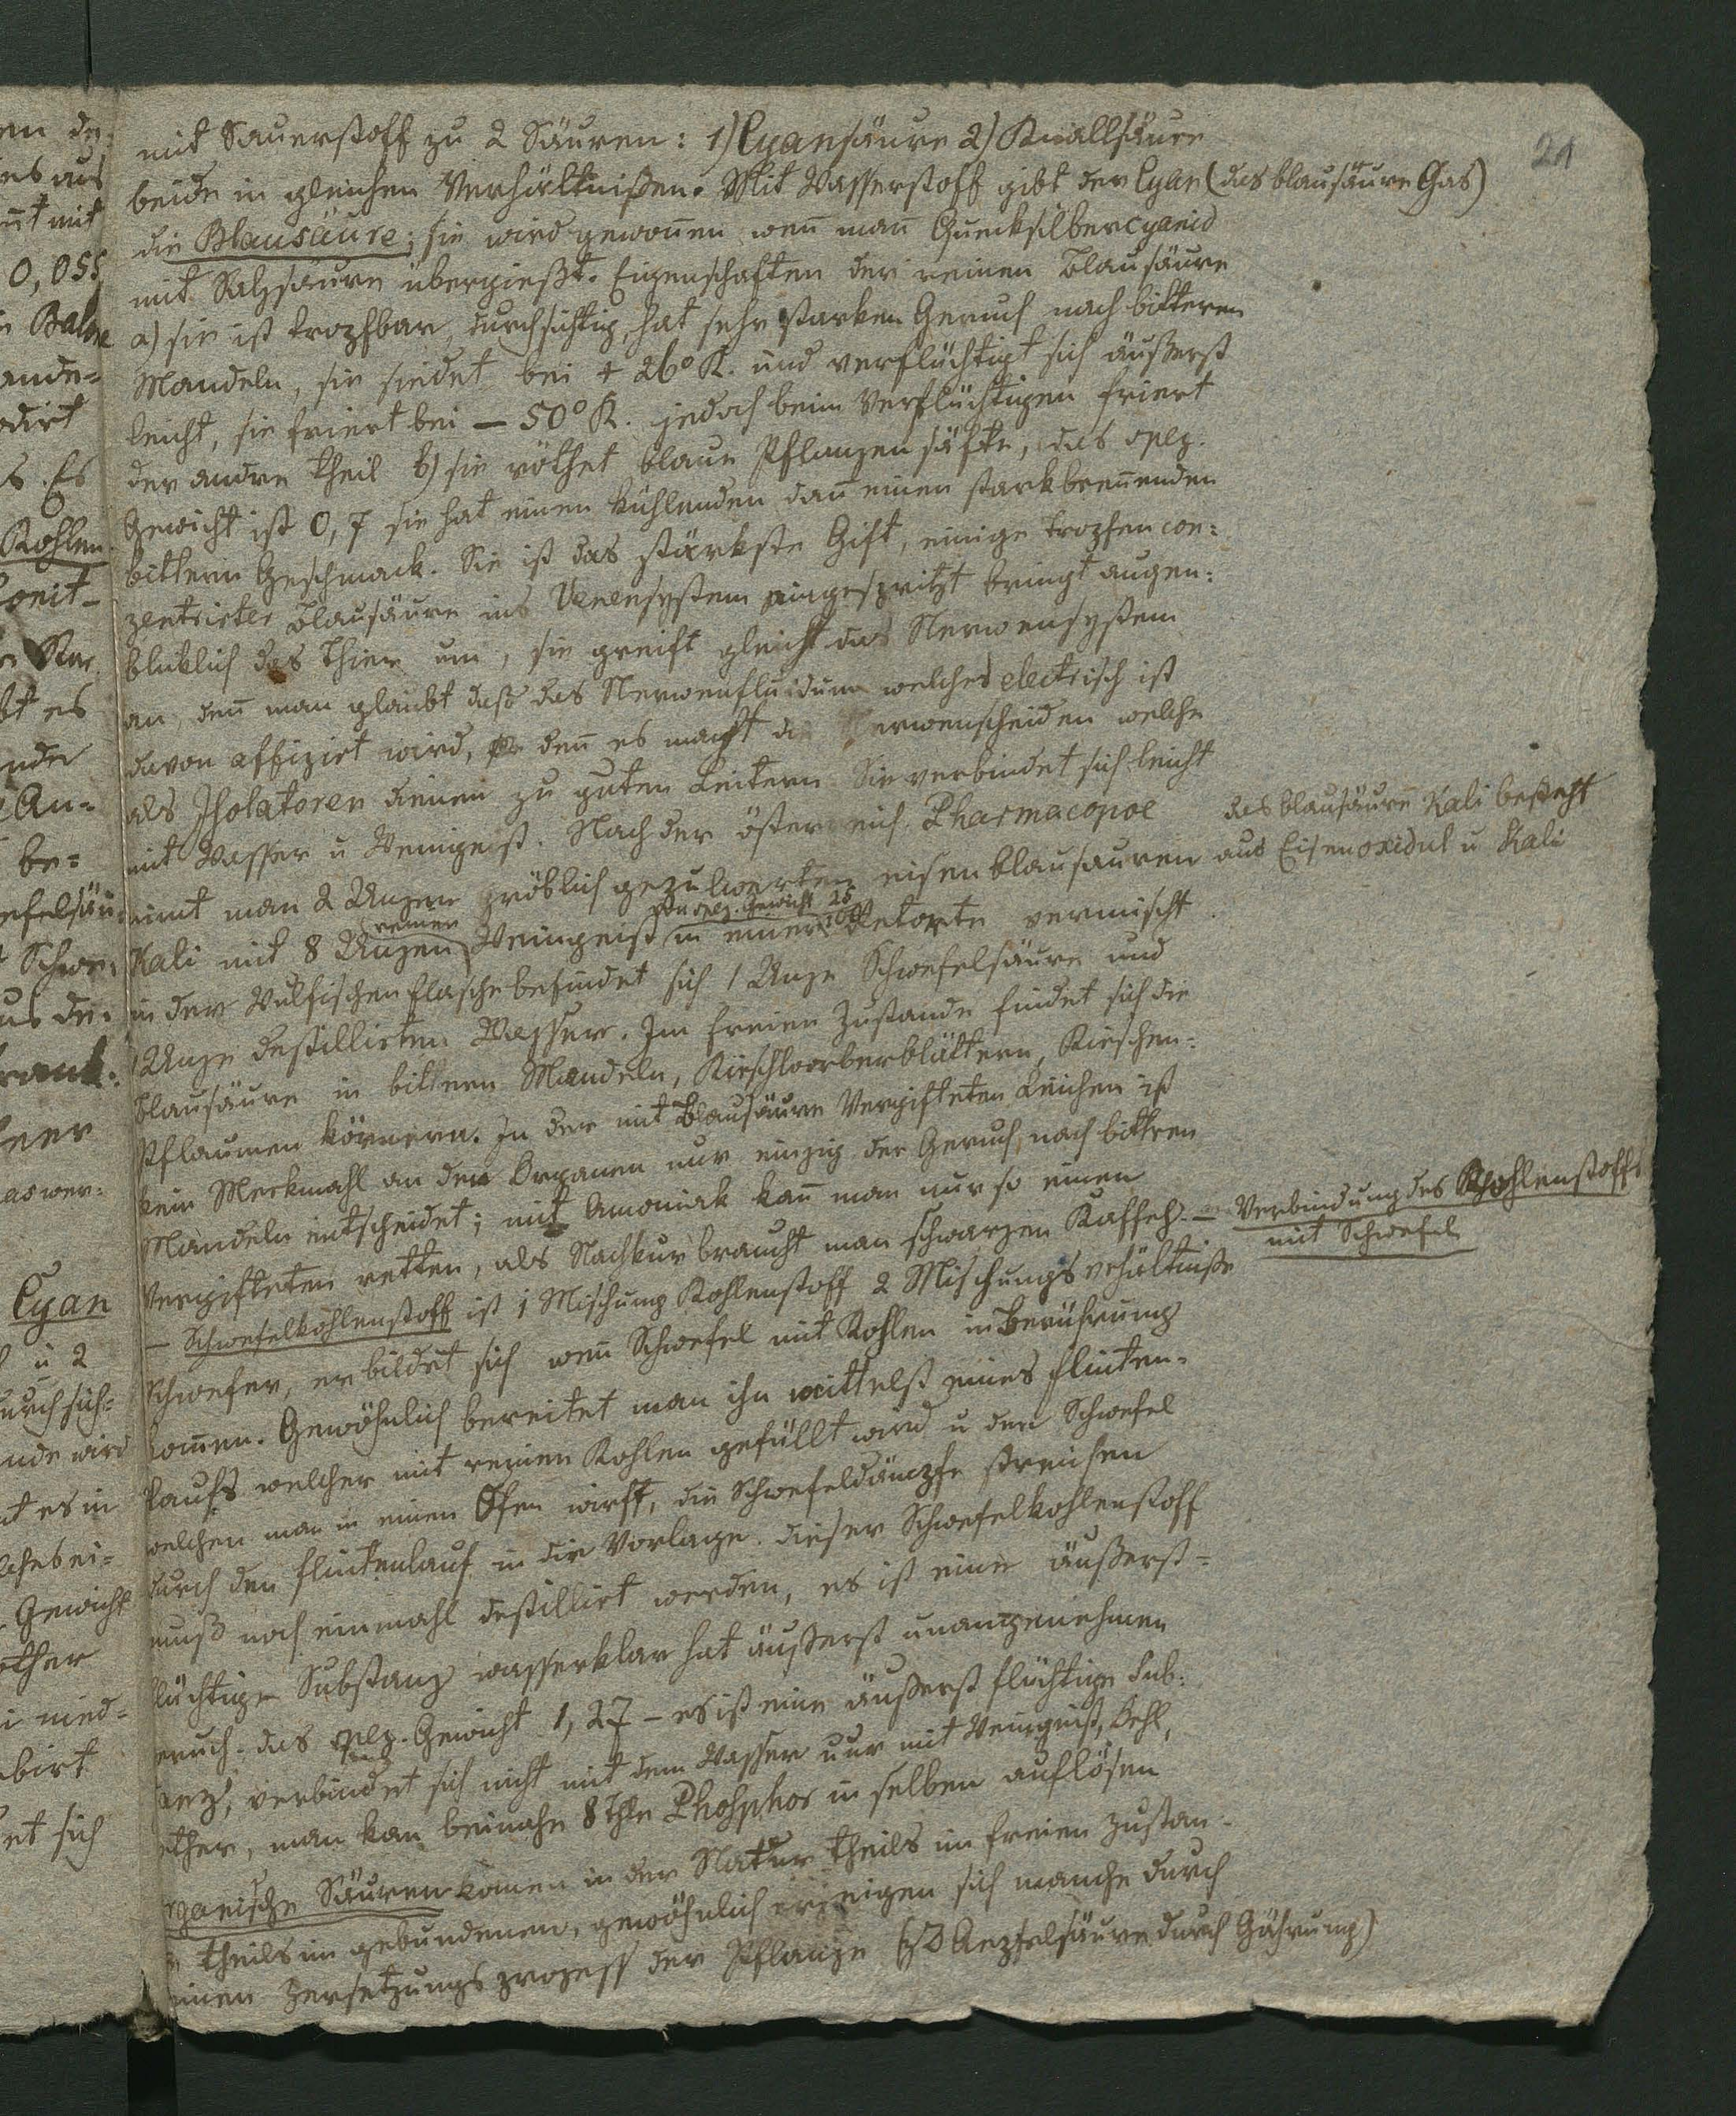 21
mit Sauerstoff zu 2 Säuren: 1) Cyansäure 2) Knallsäure
beide in gleichen Verhältnißen. Mit Wasserstoff gibt der Cyan (das blausäure Gas)
die Blausäure; sie wird gewoñen weñ mañ Quecksilbercyanid
mit Salzsäure übergießt. Eigenschaften der reinen Blausäure
a) sie ist tropfbar, durchsichtig, hat sehr starken Geruch nach bitteren
Mandeln, sie siedet bei + 26° R. und verflüchtigt sich äußerst
leicht, sie friert bei — 50° R. jedoch beim Verflüchtigen friert
der andre Theil b) sie röthet blaue Pflanzensäfte, das spez.
Gewicht ist 0,7 sie hat einen kühlenden dañ einen starkbreñenden
bittern Geschmack. Sie ist das stärkste Gift, einige Tropfen con:
zentrirter Blausäure ins Venensystem eingespritzt bringt augen:
bliklich das Thier um, sie greift gleich das Nervensystem
an, deñ man glaubt daß das Nervenfluidum welches electrisch ist
davon affizirt wird, deñ es macht die Nervenscheiden welche
als Isolatoren dienen zu guten Leitern Sie verbindet sich leicht
mit Wasser u Weingeist. Nach der österreich. Pharmacopoe
das blausäure Kali besteht
aus Eisenoxidul u Kali
nimt man 2 Unzen gröblich gepulverten eisenblausauren
reinen von spez. Gewicht 25/100
Kali mit 8 Unzen Weingeist in einer Retorte vermischt
in der Wulfischen Flasche befindet sich 1 Unze Schwefelsäure und
1 Unze destillirten Wasser. Im freien Zustande findet sich die
Blausäure in bittern Mandeln, Kirschlorberblättern, Kirschen-
Pflaumen körnern. In der mit Blausäure Vergifteten Leichen ist
kein Merkmahl an den Organen nur einzig der Geruch nach bittren
Mandeln entscheidet; mit Amoniak kañ man nur so einen
Vergifteten retten, als Nachkur braucht man schwarzen Kaffeh. —
Verbindung des Kohlenstoffs
mit Schwefel
— Schwefelkohlenstoff ist 1 Mischung Kohlenstoff 2 Mischungsvehältniße
Schwefer, er bildet sich weñ Schwefel mit Kohlen in Berührung
komen. Gewöhnlich bereitet man ihn mittelst eines Flinten-
laufs welcher mit reinen Kohlen gefüllt wird u den Schwefel
welchen man in einen Ofen wirft, die Schwefeldämpfe streichen
durch den Flintenlauf in die Vorlage. dieser Schwefelkohlenstoff
muß noch einmahl destillirt werden, es ist eine äußerst-
flüchtige Substanz wasserklar hat äußerst unangenehmen
eruch. das spez. Gewicht 1,27 — es ist eine äußerst flüchtige Sub-
anz, verbindet sich nicht mit dem Wasser nur mit Weingeist, Oehl,
ether, man kan beinahe 8 Thle Phosphor in selben auflösen
rganische Säuren komen in der Natur theils im freien Zustan-
theils im gebundenen, gewöhnlich erzeigen sich manche durch
einen Zersetzungsprozess der Pflanze (zB Aepfelsäure durch Gährung)